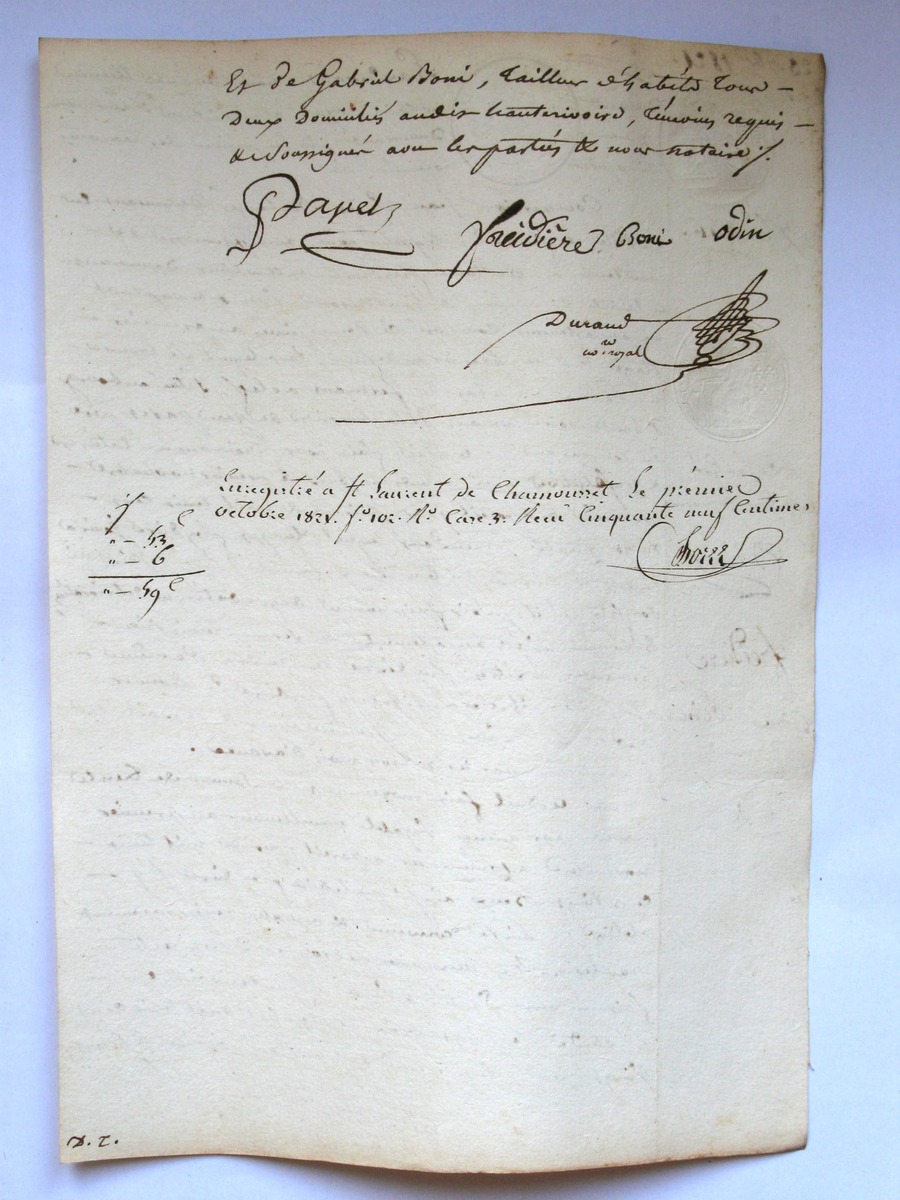 Et de Gabriel Boni, Tailleur d'habits Tous
Deux Domiciliés audit hauterivoire, Témoins requis
& Soussignés avec les parties & nous notaire
Papet
Boni
odin
Durand
no. royal
Enregistré a St Laurent de Chamousset Le prémier
octobre 1821. fo. 102. Ro. Case 3. Recu Cinquante neuf Centimes
" — 53 c
" — 6
" — 59 c
D. T.